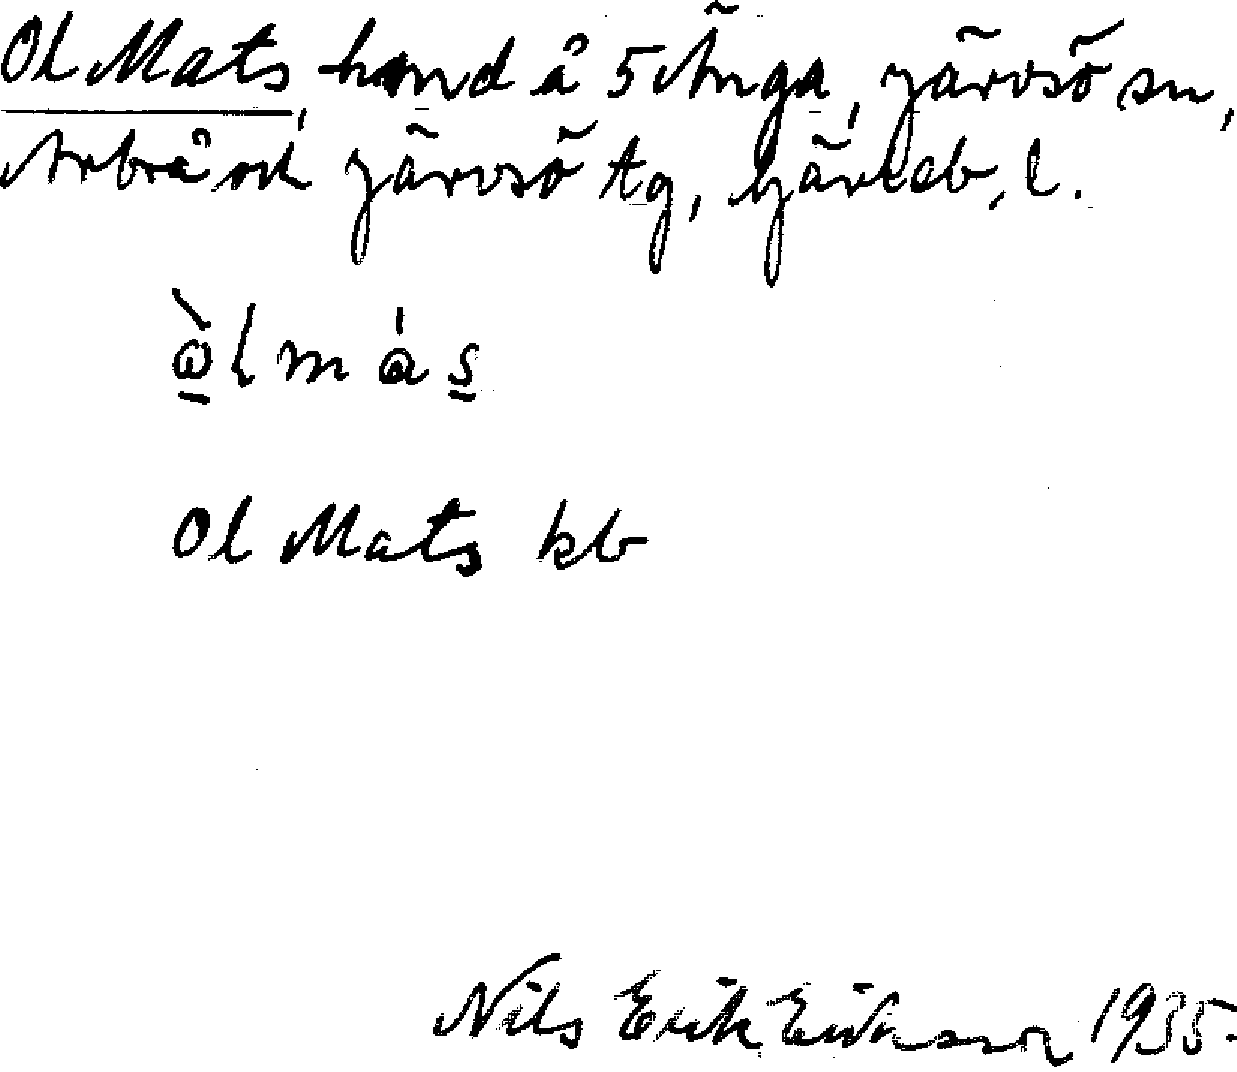 Ol Mats, hmnd å 5 Änga, Järvsö sn,
Arbrå och Järvsö tg, Gävleb, l.
Ol Mats kb
Nils Erik Eriksson 1935.